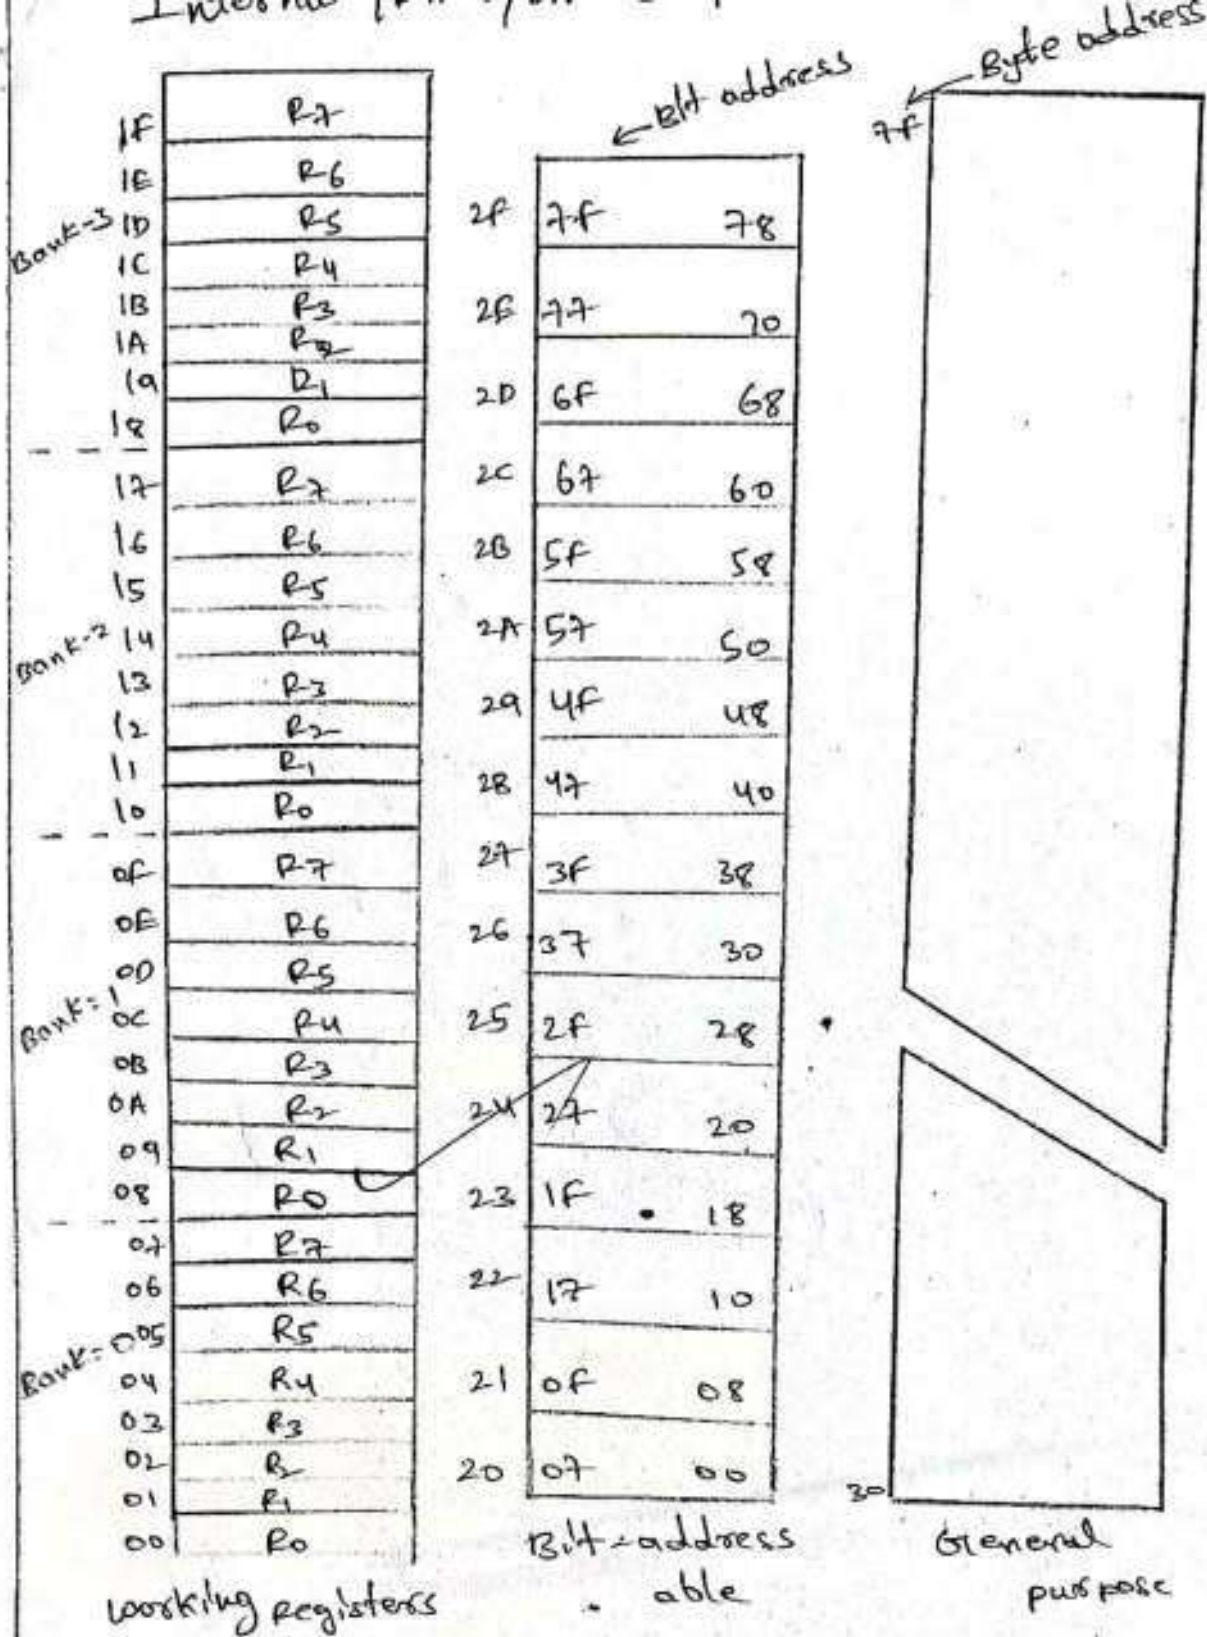 Internal
Byte address
Bit address
Bank-3
1F R7
1E R6
1D R5
1C R4
1B R3
1A R2
19 R1
18 R0
Bank-2
17 R7
16 R6
15 R5
14 R4
13 R3
12 R2
11 R1
10 R0
Bank-1
0F R7
0E R6
0D R5
0C R4
0B R3
0A R2
09 R1
08 R0
Bank-0
07 R7
06 R6
05 R5
04 R4
03 R3
02 R2
01 R1
00 R0
working registers
2F 7F 78
2E 77 70
2D 6F 68
2C 67 60
2B 5F 58
2A 57 50
29 4F 48
28 47 40
27 3F 38
26 37 30
25 2F 28
24 27 20
23 1F 18
22 17 10
21 0F 08
20 07 00
Bit-address
able
7F
30
General
purpose